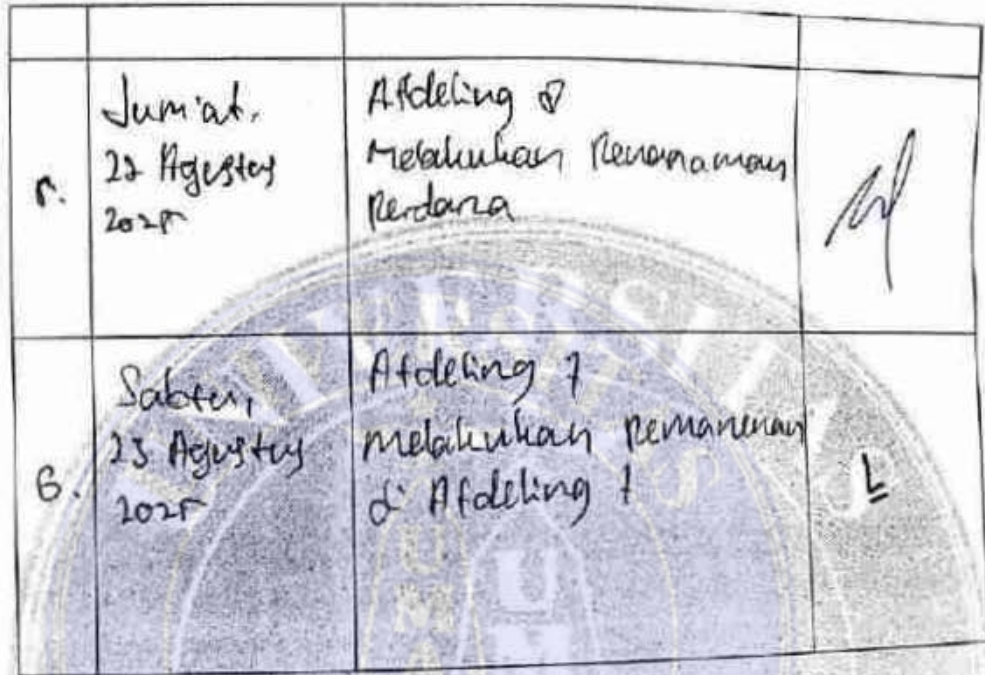 5.
Jum'at,
22 Agustus
2025
Afdeling 8
Melakukan Penanaman
Perdana
6.
Sabtu,
23 Agustus
2025
Afdeling 7
melakukan pemanenan
di Afdeling 7
UNIVERSITAS